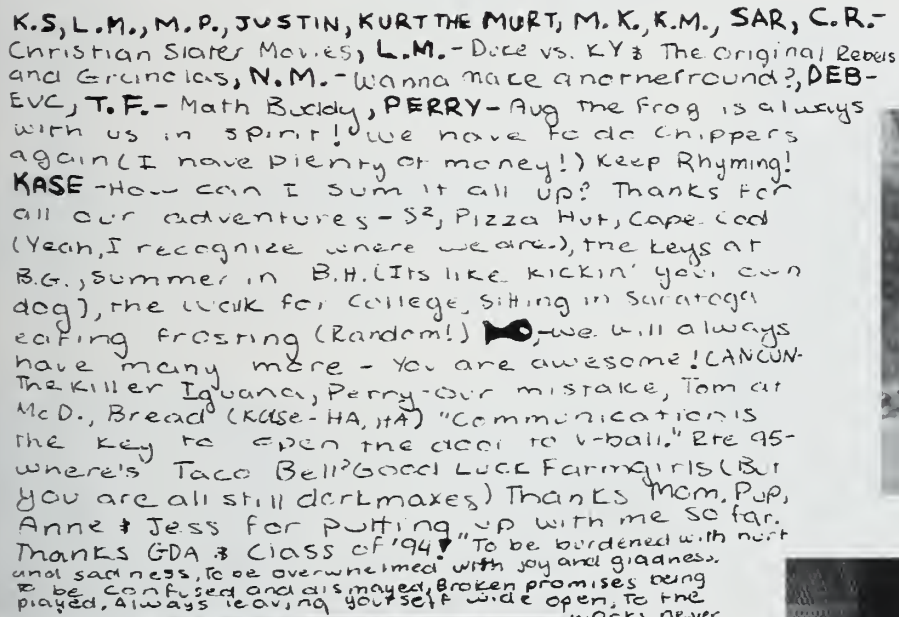 K.S, L.M., M.P., JUSTIN, KURT THE MURT, M.K., K.M., SAR, C.R.-
Christian Slater Movies, L.M.- Duce vs. KY & The Original Rebels
and Grandslas, N.M.- Wanna make another round?, DEB-
EVC, T.F.- Math Buddy, PERRY- Aug the Frog is always
with us in spirit! We have to do Chippers
again (I have plenty of money!) Keep Rhyming!
KASE -How can I sum it all up? Thanks for
all our adventures - S², Pizza Hut, Cape Cod
(Yeah, I recognize where we are.), the keys at
B.G., Summer in B.H. (Its like kickin' your own
dog), the walk for College, Sitting in Saratoga
eating frosting (Random!) -we will always
have many more - You are awesome! CANCUN-
The Killer Iguana, Perry-our mistake, Tom at
McD., Bread (Kase - HA, HA) "Communication is
the key to open the door to v-ball." Rte 95-
where's Taco Bell? Good Luck Farmgirls (But
you are all still dorkmaxes) Thanks Mom, Pup,
Anne & Jess for putting up with me so far.
Thanks GDA & Class of '94! "To be burdened with hurt
and sadness, To be overwhelmed with joy and gladness.
To be confused and dismayed, Broken promises being
played, Always leaving yourself wide open, To the
never